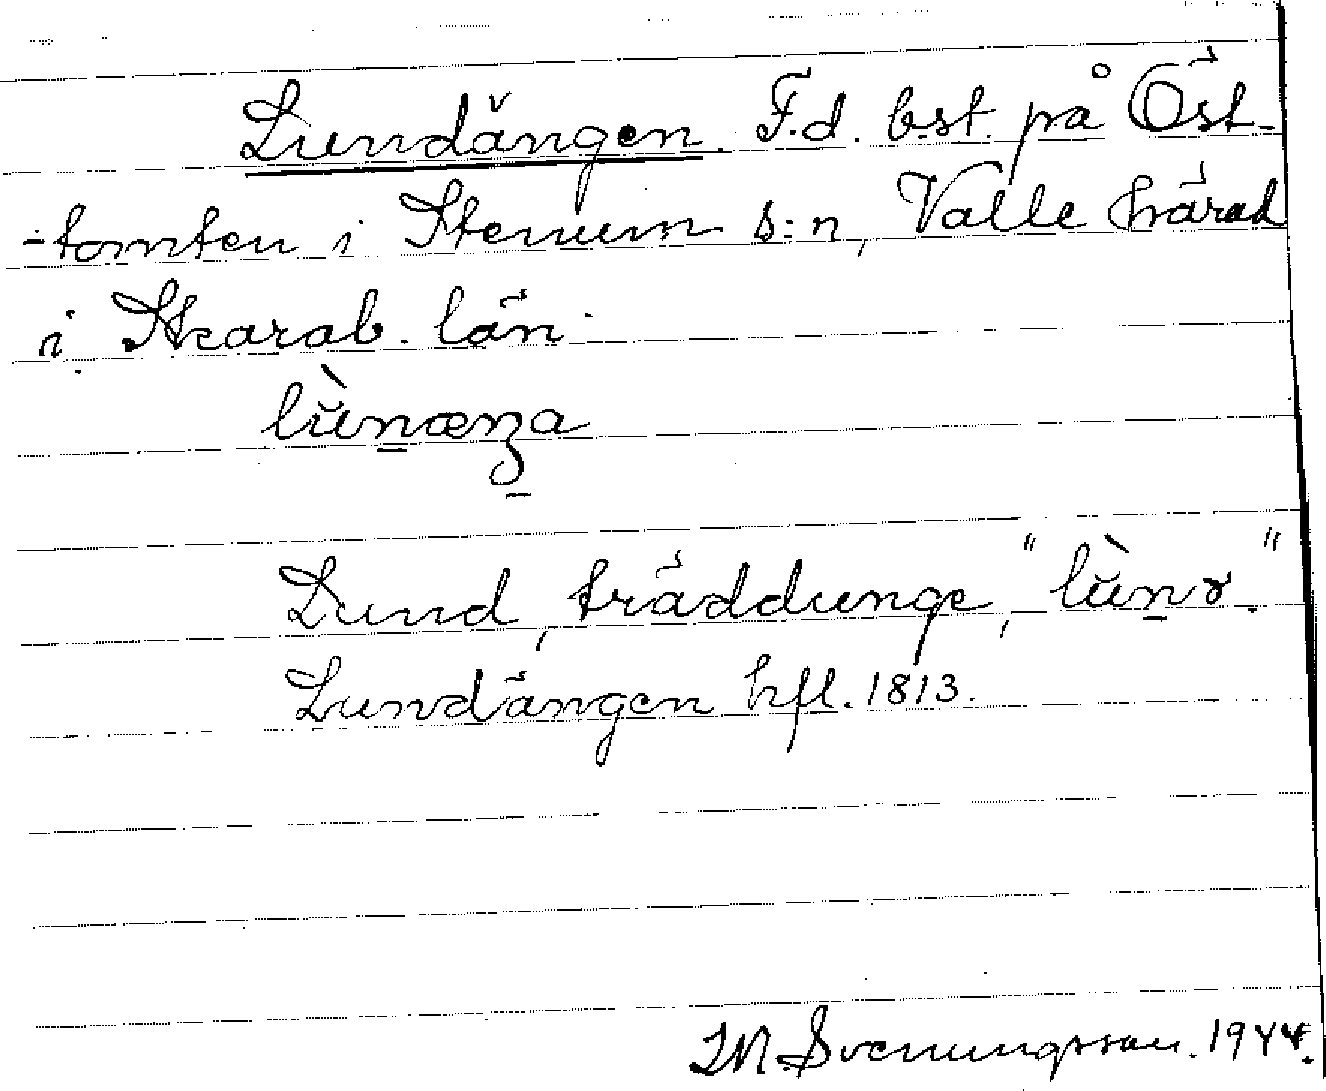 Lundängen. F.d. bst. på Öst-
-tomten i Stenum s:n, Valle härad
i Skarab. län.
lùnæŋa
Lund, träddunge, "lùnɤ."
Lundängen hfl. 1813.
IM. Svenungsson. 1944.